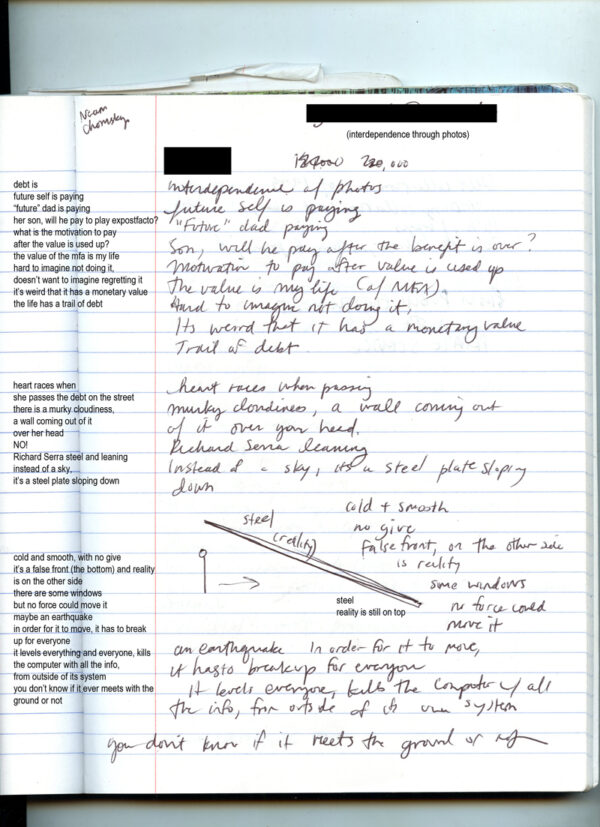 Noam
Chomsky
(interdependence through photos)
120,000
debt is
future self is paying
“future” dad is paying
her son, will he pay to play expostfacto?
what is the motivation to pay
after the value is used up?
the value of the mfa is my life
hard to imagine not doing it,
doesn't want to imagine regretting it
it's weird that it has a monetary value
the life has a trail of debt
Interdependence of photos
future self is paying
"Future" dad paying
Son, will he pay after the benefit is over?
Motivation to pay after value is used up
The value is my life (of MFA).
Hard to imagine not doing it,
Its weird that it has a monetary value
Trail of debt.
heart races when
she passes the debt on the street
there is a murky cloudiness,
a wall coming out of it
over her head
NO!
Richard Serra steel and leaning
instead of a sky,
it's a steel plate sloping down
heart races when passing
murky cloudiness, a wall coming out
of it over your head.
Richard Serra leaning
Instead of a sky, its a steel plate sloping
down
cold and smooth, with no give
it's a false front (the bottom) and reality
is on the other side
there are some windows
but no force could move it
maybe an earthquake
in order for it to move, it has to break
up for everyone
it levels everything and everyone, kills
the computer with all the info,
from outside of its system
you don't know if it ever meets with the
ground or not
steel
(reality)
cold + smooth
no give
false front, on the other side
is reality
some windows
no force could
move it
steel
reality is still on top
an earthquake In order for it to move,
it has to break up for everyone
It levels everyone, kills the computer w/ all
the info, from outside of its own system
you don't know if it meets the ground or not